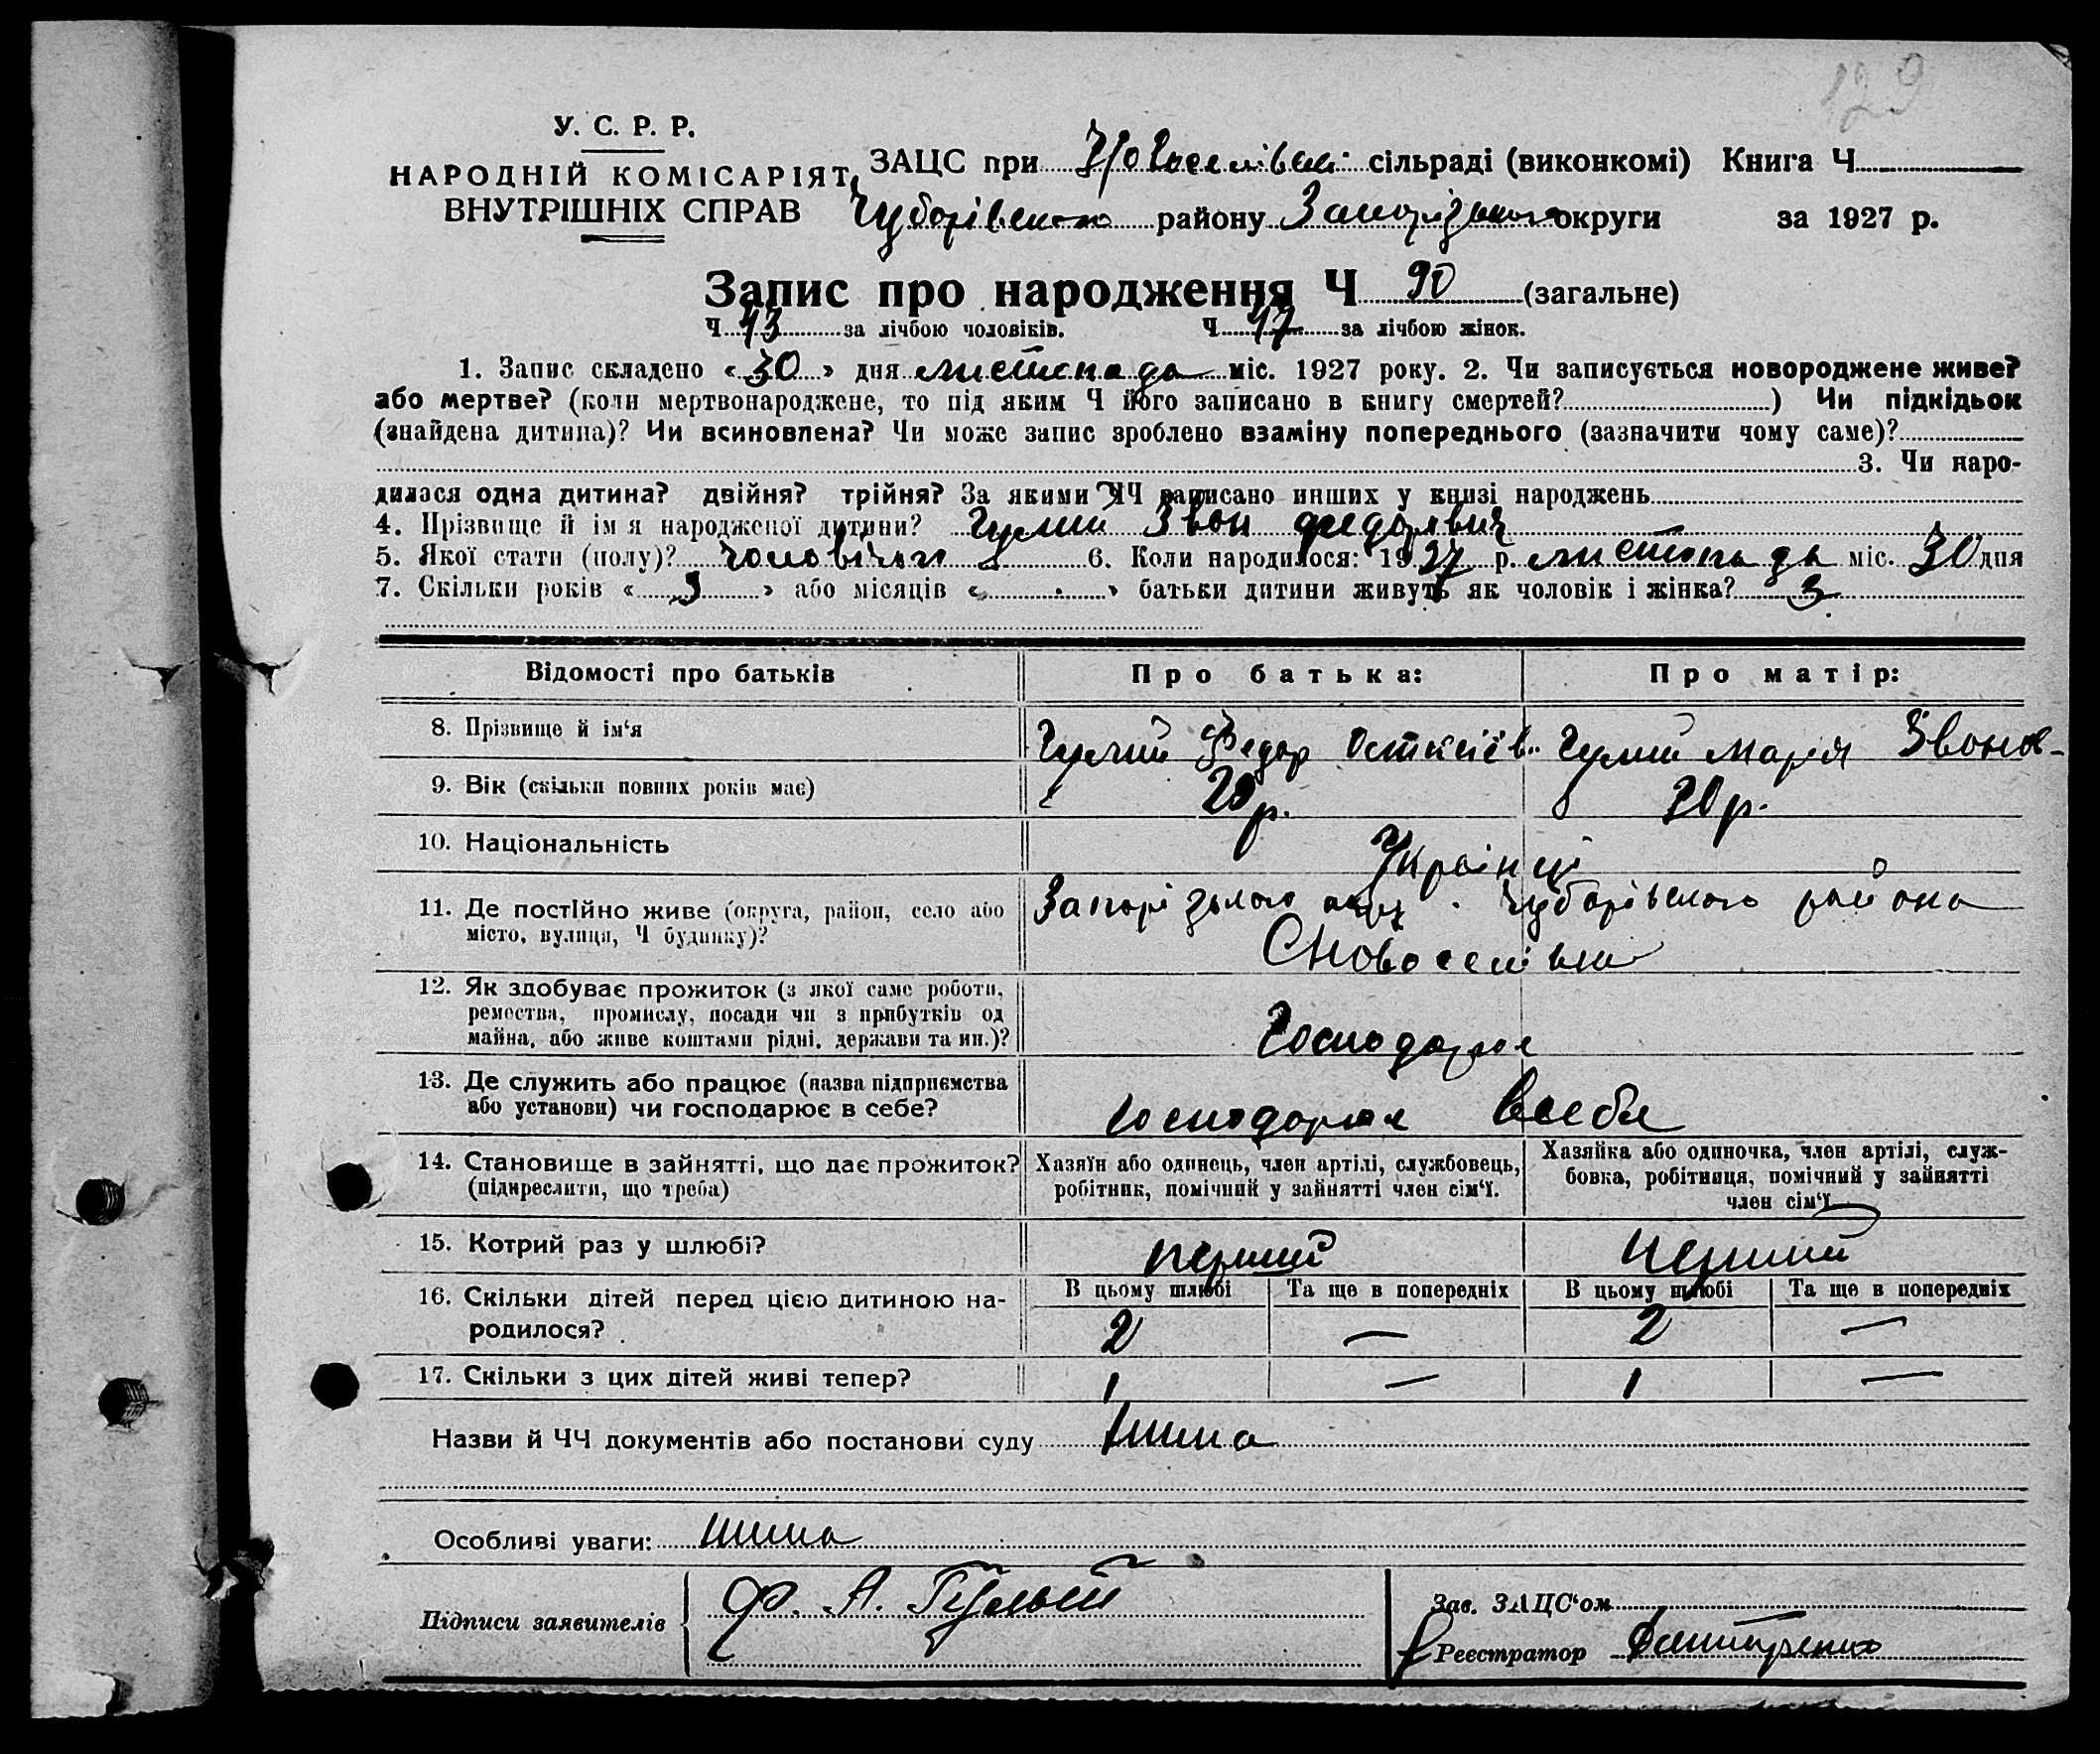 129
У. С. Р. Р.
НАРОДНІЙ КОМІСАРІЯТ
ВНУТРІШНІХ СПРАВ
ЗАЦС при Новоселівські сільраді (виконкомі) Книга Ч
Чубарівського району Запорізького округи за 1927 р.
Запис про народження Ч 90 (загальне)
Ч 43 за лічбою чоловіків. Ч 47 за лічбою жінок.
1. Запис складено «30» дня листопада міс. 1927 року. 2. Чи записується новороджене живе?
або мертве? (коли мертвонароджене, то під яким Ч його записано в книгу смертей? ) Чи підкідьок
(знайдена дитина)? Чи всиновлена? Чи може запис зроблено взаміну попереднього (зазначити чому саме)?
3. Чи наро-
дилася одна дитина? двійня? трійня? За якими ЧЧ записано инших у книзі народжень
4. Прізвище й ім я народженої дитини? Гулий Звон Федорович
5. Якої стати (полу)? чоловічого 6. Коли народилося: 1927 р. листопада міс. 30 дня
7. Скільки років «3» або місяців « » батьки дитини живуть як чоловік і жінка? 3
Відомості про батьків Про батька: Про матір:
8. Прізвище й ім‘я Гулий Федор Гулий Марія
9. Вік (скільки повних років має) 29 р. 20 р.
10. Національність Українці
11. Де постійно живе (округа, район, село або Запорізького окр. Чубарівського района
місто, вулиця, Ч будинку)? С Новоселівки
12. Як здобуває прожиток (з якої саме роботи,
ремества, промислу, посади чи з прибутків од
майна, або живе коштами рідні, держави та ин.)? Господарює
13. Де служить або працює (назва підприємства
або установи) чи господарює в себе? господарює в себе
14. Становище в зайнятті, що дає прожиток? Хазяїн або одинець, член артілі, службовець, Хазяйка або одиночка, член артілі, служ-
(підкреслити, що треба) робітник, помічний у зайнятті член сім‘ї. бовка, робітниця, помічний у зайнятті
член сім‘ї
15. Котрий раз у шлюбі? перший перший
16. Скільки дітей перед цією дитиною на- В цьому шлюбі Та ще в попередніх В цьому шлюбі Та ще в попередніх
родилося? 2 — 2 —
17. Скільки з цих дітей живі тепер? 1 — 1 —
Назви й ЧЧ документів або постанови суду нима
Особливі уваги: нима
Підписи заявителів Ф. А. Гулый
Зав. ЗАЦС‘ом
Реєстратор